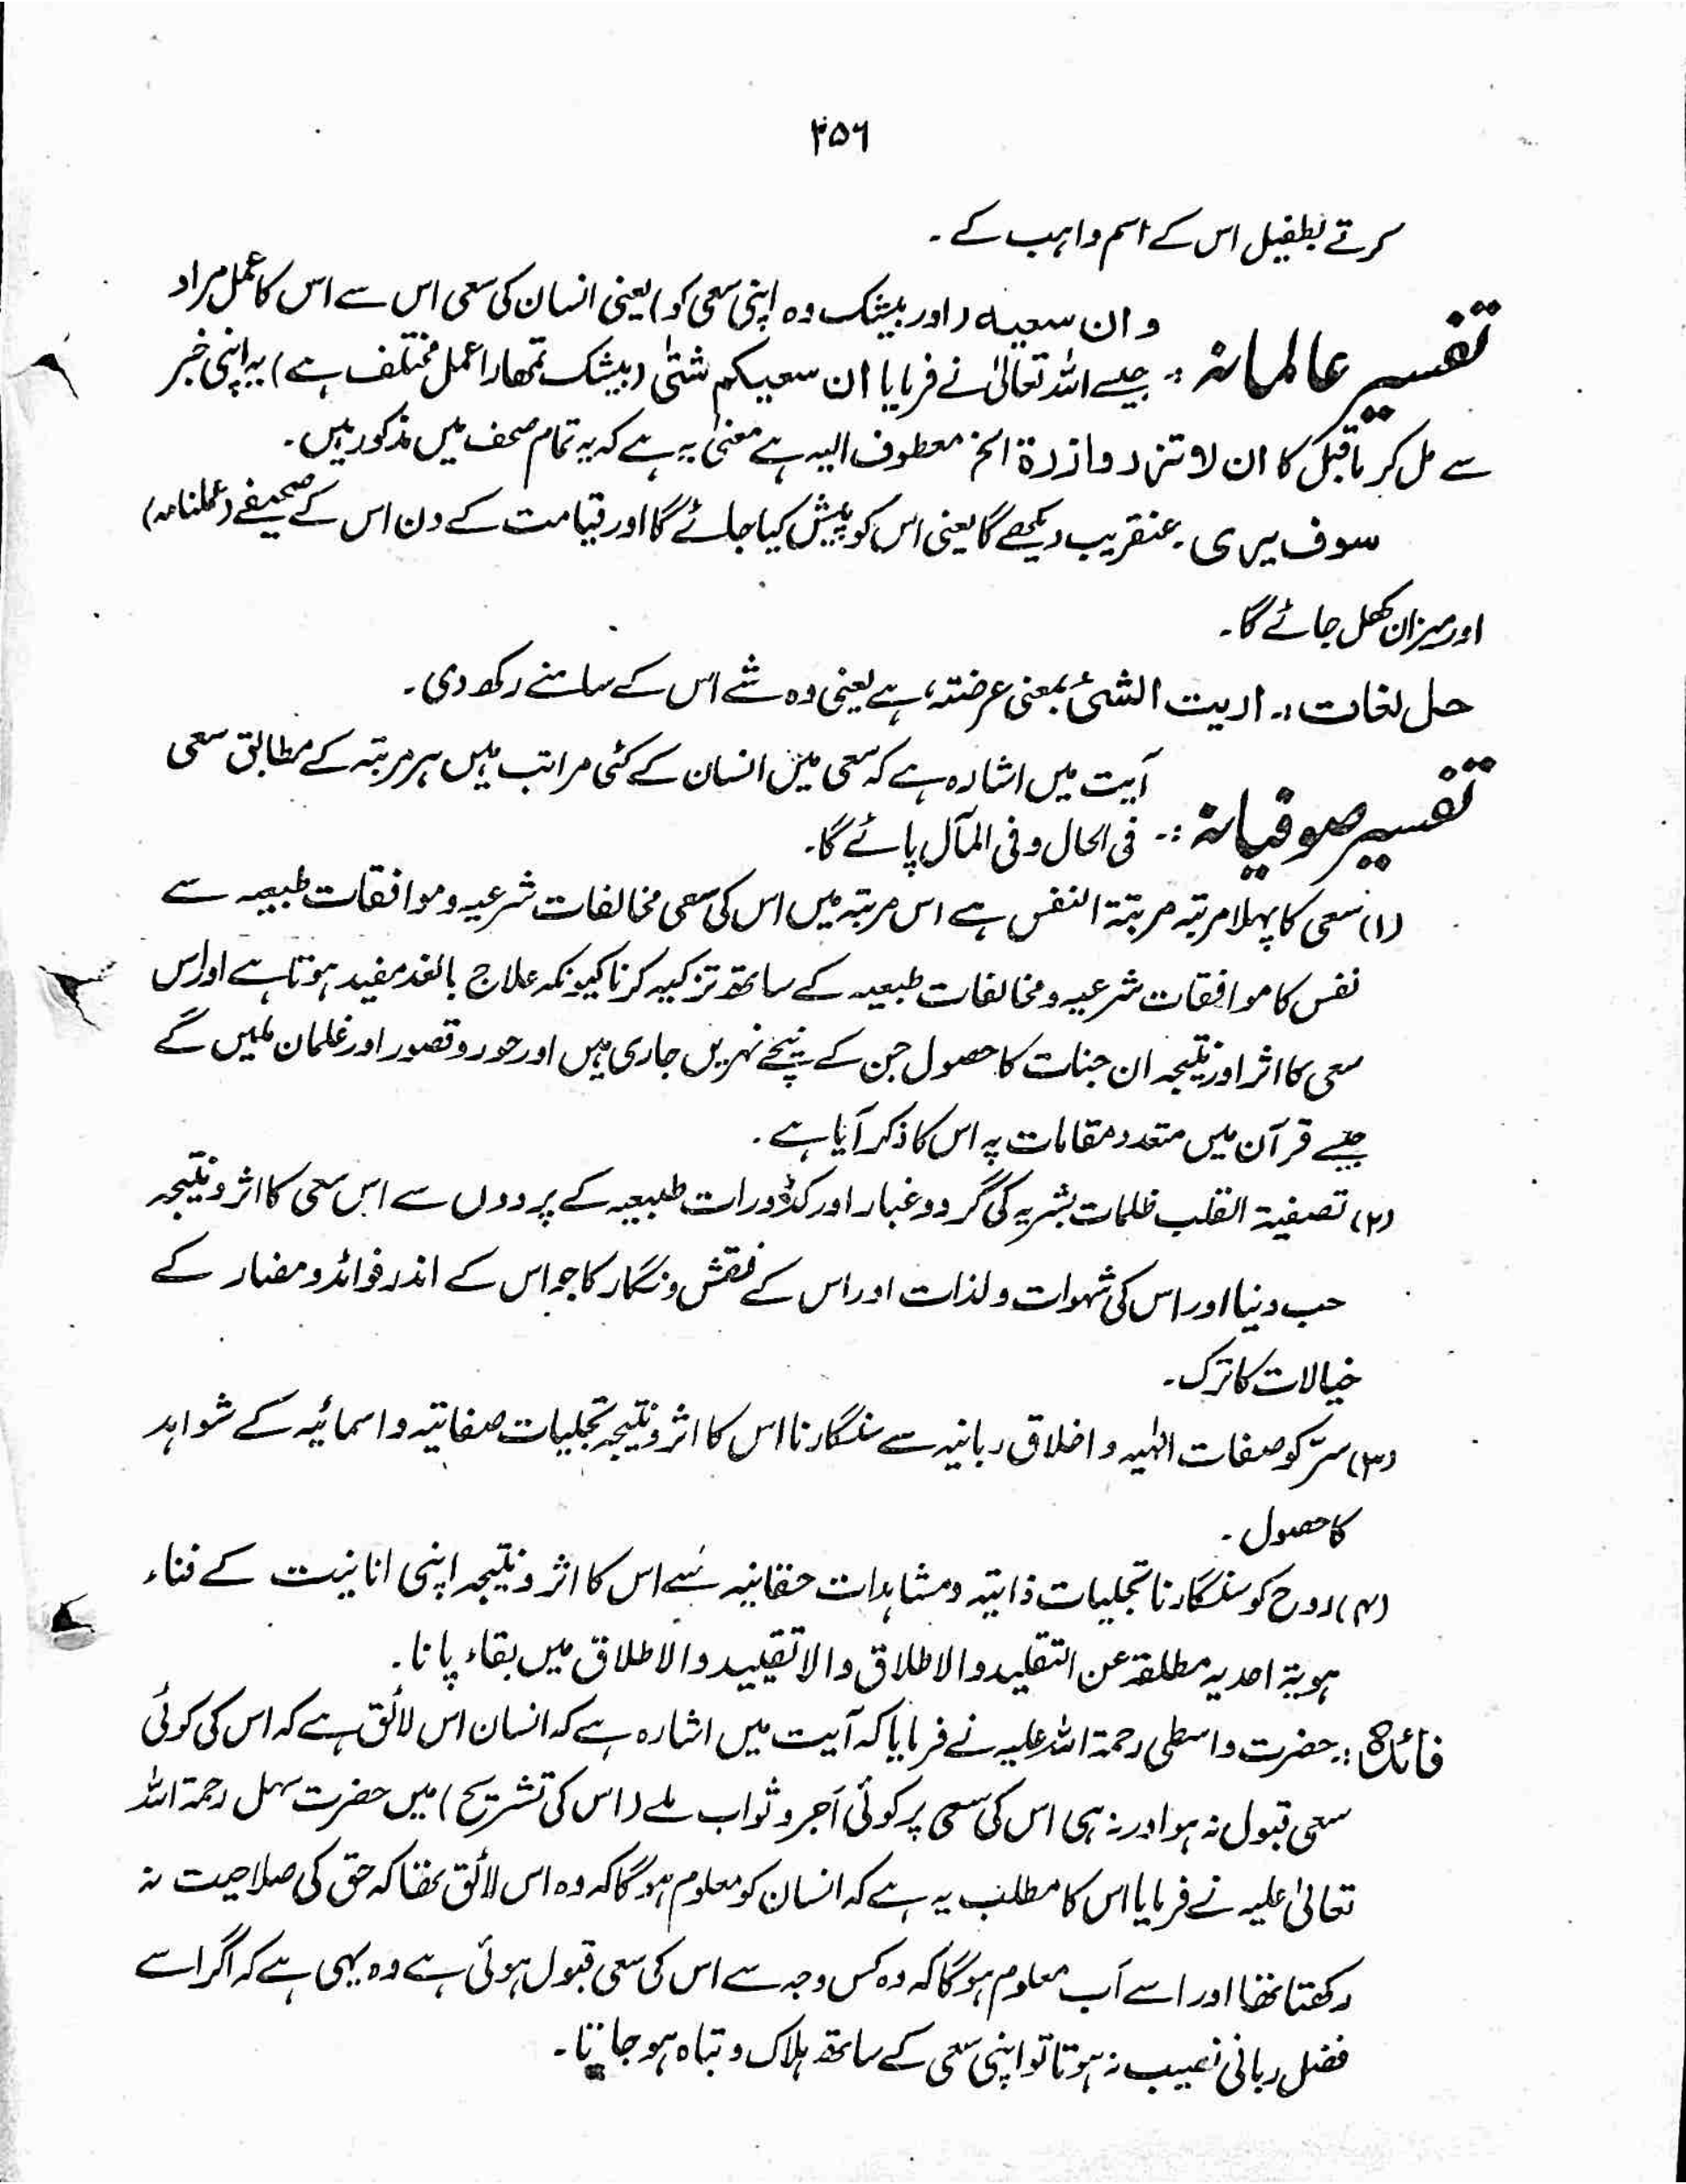 ۳۵۶
کرتے بطفیل اس کے اسم واہب کے ۔
تفسیر عالمانہ :۔ وان سعیہ (اور بیشک وہ اپنی سعی کو) یعنی انسان کی سعی اس سے اس کا عمل مراد
جیسے اللہ تعالیٰ نے فرمایا ان سعیکم شتیٰ (بیشک تمھارا عمل مختلف ہے) یہ اپنی خبر
سے مل کر ماقبل کا ان لا تزر وازرۃ الخ معطوف الیہ ہے معنیٰ یہ ہے کہ یہ تمام صحف میں مذکور ہیں ۔
سوف یری ۔ عنقریب دیکھے گا یعنی اس کو پیش کیا جائے گا اور قیامت کے دن اس کے صحیفے (عملنامہ)
اور میزان کھل جائے گا ۔
حل لغات :۔ اریت الشیٔ بمعنی عرضتہ، ہے یعنی وہ شے اس کے سامنے رکھ دی ۔
تفسیر صوفیانہ :۔ آیت میں اشارہ ہے کہ سعی میں انسان کے کئی مراتب ہیں ہر مرتبہ کے مطابق سعی
فی الحال وفی المآل پائے گا۔
(۱) سعی کا پہلا مرتبہ مرتبۃ النفس ہے اس مرتبہ میں اس کی سعی مخالفات شرعیہ و موافقات طبعیہ سے
نفس کا موافقات شرعیہ و مخالفات طبعیہ کے ساتھ تزکیہ کرنا کیونکہ علاج بالضد مفید ہوتا ہے اور اس
سعی کا اثر اور نتیجہ ان جنات کا حصول جن کے نیچے نہریں جاری ہیں اور حور و قصور اور غلمان ملیں گے
جیسے قرآن میں متعدد مقامات پہ اس کا ذکر آیا ہے ۔
(۲) تصفیۃ القلب ظلمات بشریہ کی گرد و غبار اور کدورات طبیعہ کے پردوں سے اس سعی کا اثر و نتیجہ
حب دنیا اور اس کی شہوات و لذات اور اس کے نقش و نگار کا جو اس کے اندر فوائد و مضار کے
خیالات کا ترک۔
(۳) سرّ کو صفات الٰہیہ و اخلاق ربانیہ سے سنگارنا اس کا اثر و نتیجہ تجلیات صفاتیہ و اسمائیہ کے شواہد
کا حصول ۔
(۴) روح کو سنگارنا تجلیات ذاتیہ و مشاہدات حقانیہ سے اس کا اثر و نتیجہ اپنی انانیت کے فناء
ہویۃ احدیہ مطلقۃ عن التقلید والاطلاق والاتقیید والاطلاق میں بقاء پانا ۔
فائدہ :۔ حضرت واسطی رحمۃ اللہ علیہ نے فرمایا کہ آیت میں اشارہ ہے کہ انسان اس لائق ہے کہ اس کی کوئی
سعی قبول نہ ہو اور نہ ہی اس کی سعی پر کوئی اجر و ثواب ملے (اس کی تشریح) میں حضرت سہل رحمۃ اللہ
تعالیٰ علیہ نے فرمایا اس کا مطلب یہ ہے کہ انسان کو معلوم ہوگا کہ وہ اس لائق تھا کہ حق کی صلاحیت نہ
رکھتا تھا اور اسے اب معلوم ہوگا کہ وہ کس وجہ سے اس کی سعی قبول ہوئی ہے وہ یہی ہے کہ اگر اسے
فضل ربانی نصیب نہ ہوتا تو اپنی سعی کے ساتھ ہلاک و تباہ ہو جاتا۔